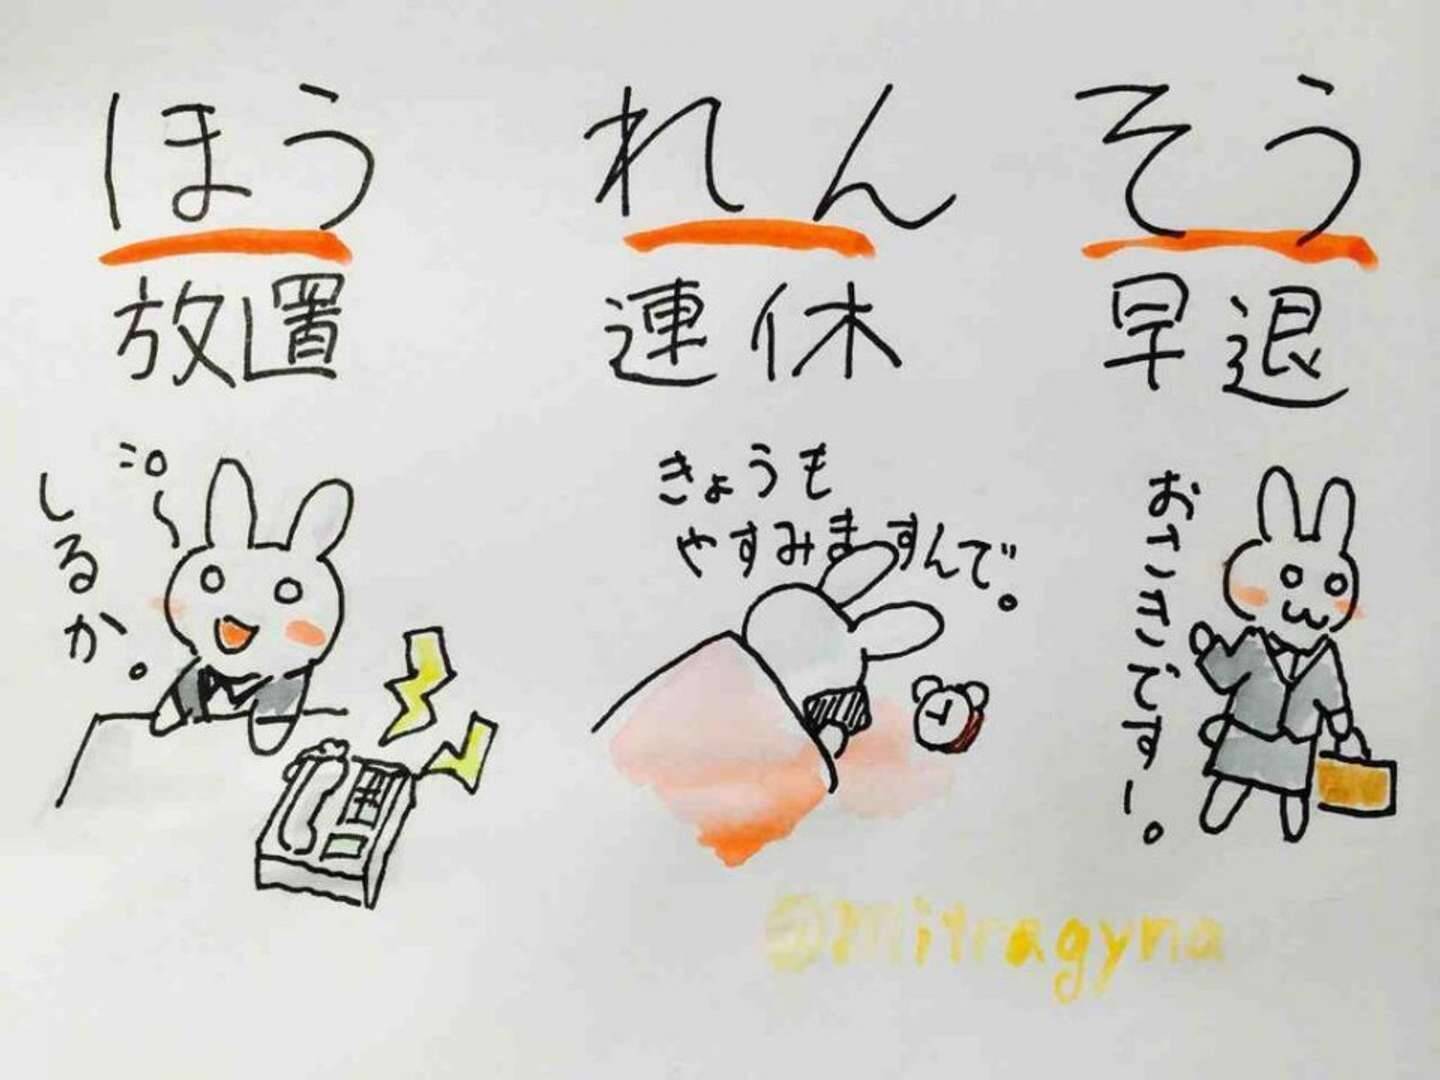 ほう
放置
しるか。
れん
連休
きょうも
やすみますんで。
そう
早退
おさきでーす。
@Mitragyna